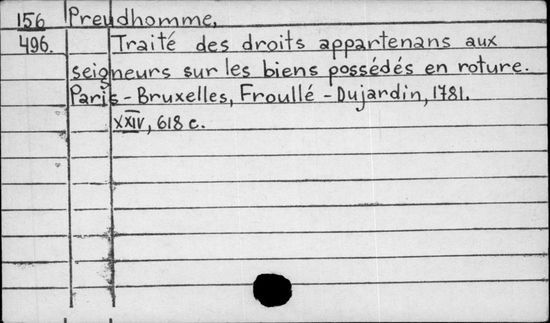 156 Preudhomme,
496. Traité des droits appartenans aux
seigneurs sur les biens possédés en roture.
Paris - Bruxelles, Froullé - Dujardin, 1781.
XXIV, 618 c.